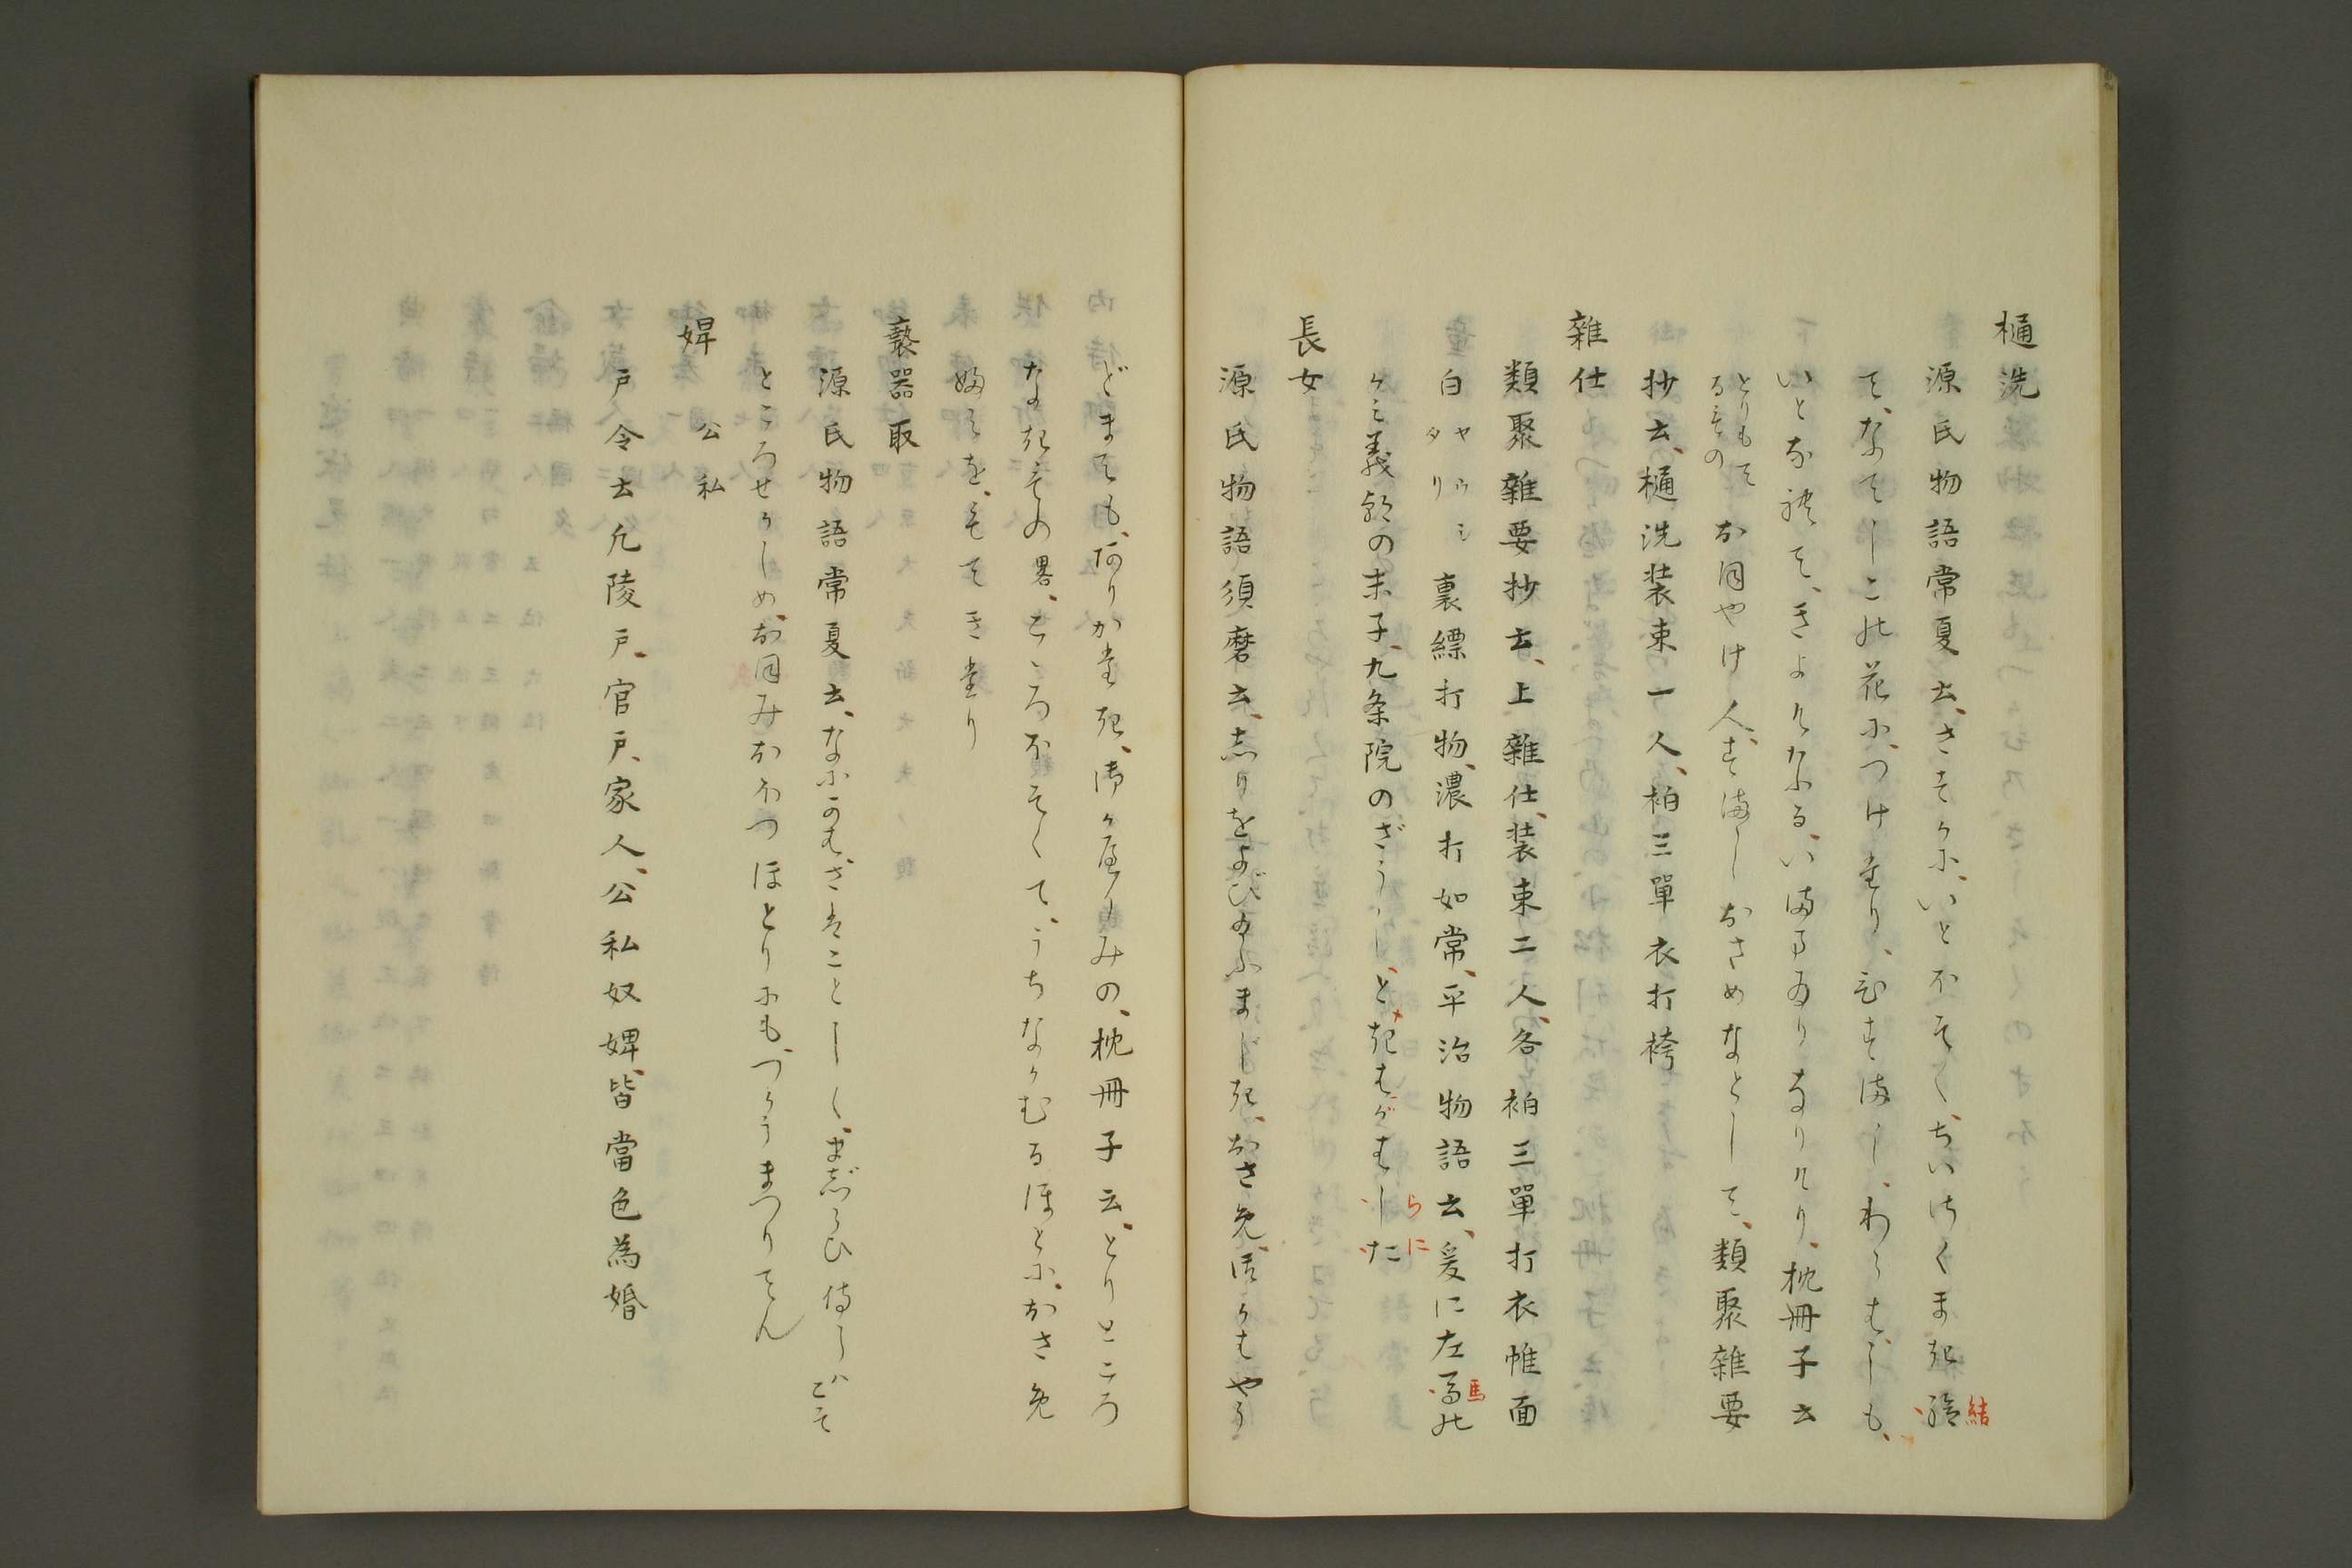 樋洗
源氏物語常夏云、さすかに、いとほそく、ちいさくまき結
て、なてしこの花に、つけたり、ひすましわらはしも、
いとなれて、きよけなる、いままゐりなりけり、枕冊子云
とりもてるもの
おほやけ人、すましおさめなとして、類聚雑要
抄云、樋洗装束一人、袙三單衣打袴
雜仕
類聚雜要抄云、上雜仕、装束二人、各袙三單打衣帷面
白ヤウシタリ裏縹打物、濃打如常、平治物語云、爰に左馬の
かみ義朝の末子、九条院のざうしときはがはらに
長女
源氏物語須磨云、しりをよびたふまじき、おさめ、ほかはやう
どまても、ありかたき、御かへりみの、枕冊子云、とりところ
なきもの畧、こころほそくて、うちなかむるほとに、おさめ
嫗みを、もてきたり
褻器取
源氏物語常夏云、なにかはざはことことしく、まじらひ侍らはこそ
ところせからしめ、おほみおほつほとりにも、つかうまつりてん
婢 公私
戸令云凡陵戸、官戸、家人、公私奴婢、皆當色為婚